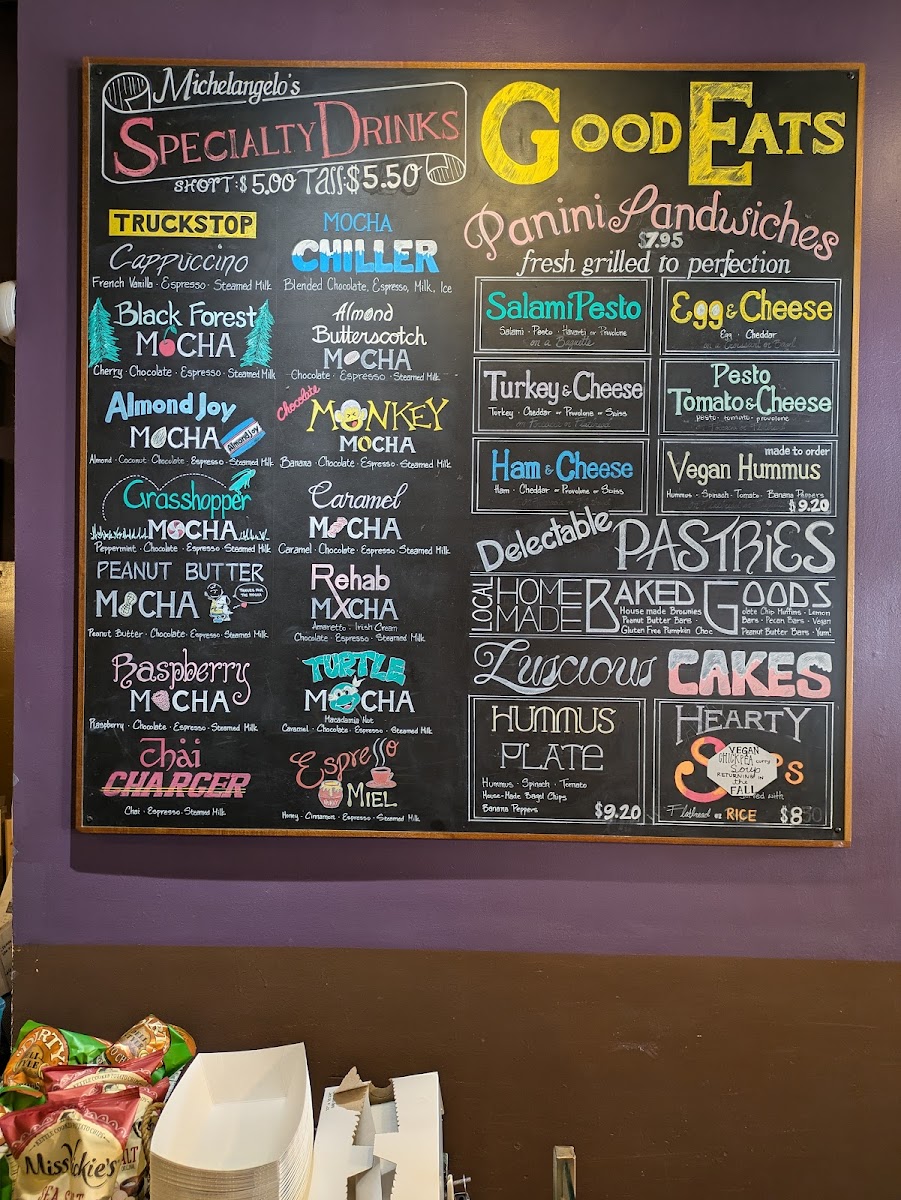 Michelangelo's
SPECIALTY DRINKS
SHORT: $5.00 Tall: $5.50
TRUCKSTOP
Cappuccino
French Vanilla · Espresso · Steamed Milk
Black Forest
MOCHA
Cherry · Chocolate · Espresso · Steamed Milk
Almond Joy
MOCHA
Almond Joy
Almond · Coconut · Chocolate · Espresso · Steamed Milk
Grasshopper
MOCHA
Peppermint · Chocolate · Espresso · Steamed Milk
PEANUT BUTTER
MOCHA
Peanut Butter · Chocolate · Espresso · Steamed Milk
Raspberry
MOCHA
Raspberry · Chocolate · Espresso · Steamed Milk
Chai
CHARGER
Chai · Espresso · Steamed Milk
MOCHA
CHILLER
Blended Chocolate, Espresso, Milk, Ice
Almond
Butterscotch
MOCHA
Chocolate · Espresso · Steamed Milk
Chocolate
MONKEY
MOCHA
Banana · Chocolate · Espresso · Steamed Milk
Caramel
MOCHA
Caramel · Chocolate · Espresso · Steamed Milk
Rehab
MXCHA
Amaretto · Irish Cream
Chocolate · Espresso · Steamed Milk
TURTLE
MOCHA
Macadamia Nut
Caramel · Chocolate · Espresso · Steamed Milk
Espresso
MIEL
Honey · Cinnamon · Espresso · Steamed Milk
GOOD EATS
Panini Sandwiches
$7.95
fresh grilled to perfection
Salami Pesto
Salami · Pesto · Havarti or Provolone
on a Baguette
Egg & Cheese
Egg · Cheddar
on a Croissant or Bagel
Turkey & Cheese
Turkey · Cheddar or Provolone or Swiss
Pesto
Tomato & Cheese
pesto · tomato · provolone
Ham & Cheese
Ham · Cheddar or Provolone or Swiss
made to order
Vegan Hummus
Hummus · Spinach · Tomato · Banana Peppers
$9.20
Delectable PASTRIES
LOCAL HOME MADE BAKED GOODS
House made Brownies
Peanut Butter Bars
Gluten Free Pumpkin Choc
olate Chip Muffins · Lemon
Bars · Pecan Bars · Vegan
Peanut Butter Bars · Yum!
Luscious CAKES
HUMMUS
PLATE
Hummus · Spinach · Tomato
House-Made Bagel Chips
Banana Peppers
$9.20
HEARTY
VEGAN
CHICKPEA curry
Soup
RETURNING in
the
FALL
served with
Flatbread or RICE $8
Miss Vickie's